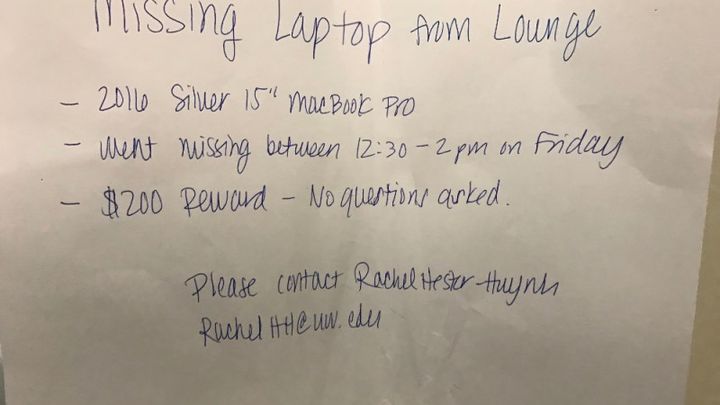 Missing Laptop from Lounge
- 2016 Silver 15" MacBook Pro
- Went missing between 12:30-2pm on Friday
- $200 Reward - No questions asked.
Please contact Rachel Hester-Huynh
RachelHH@uw.edu